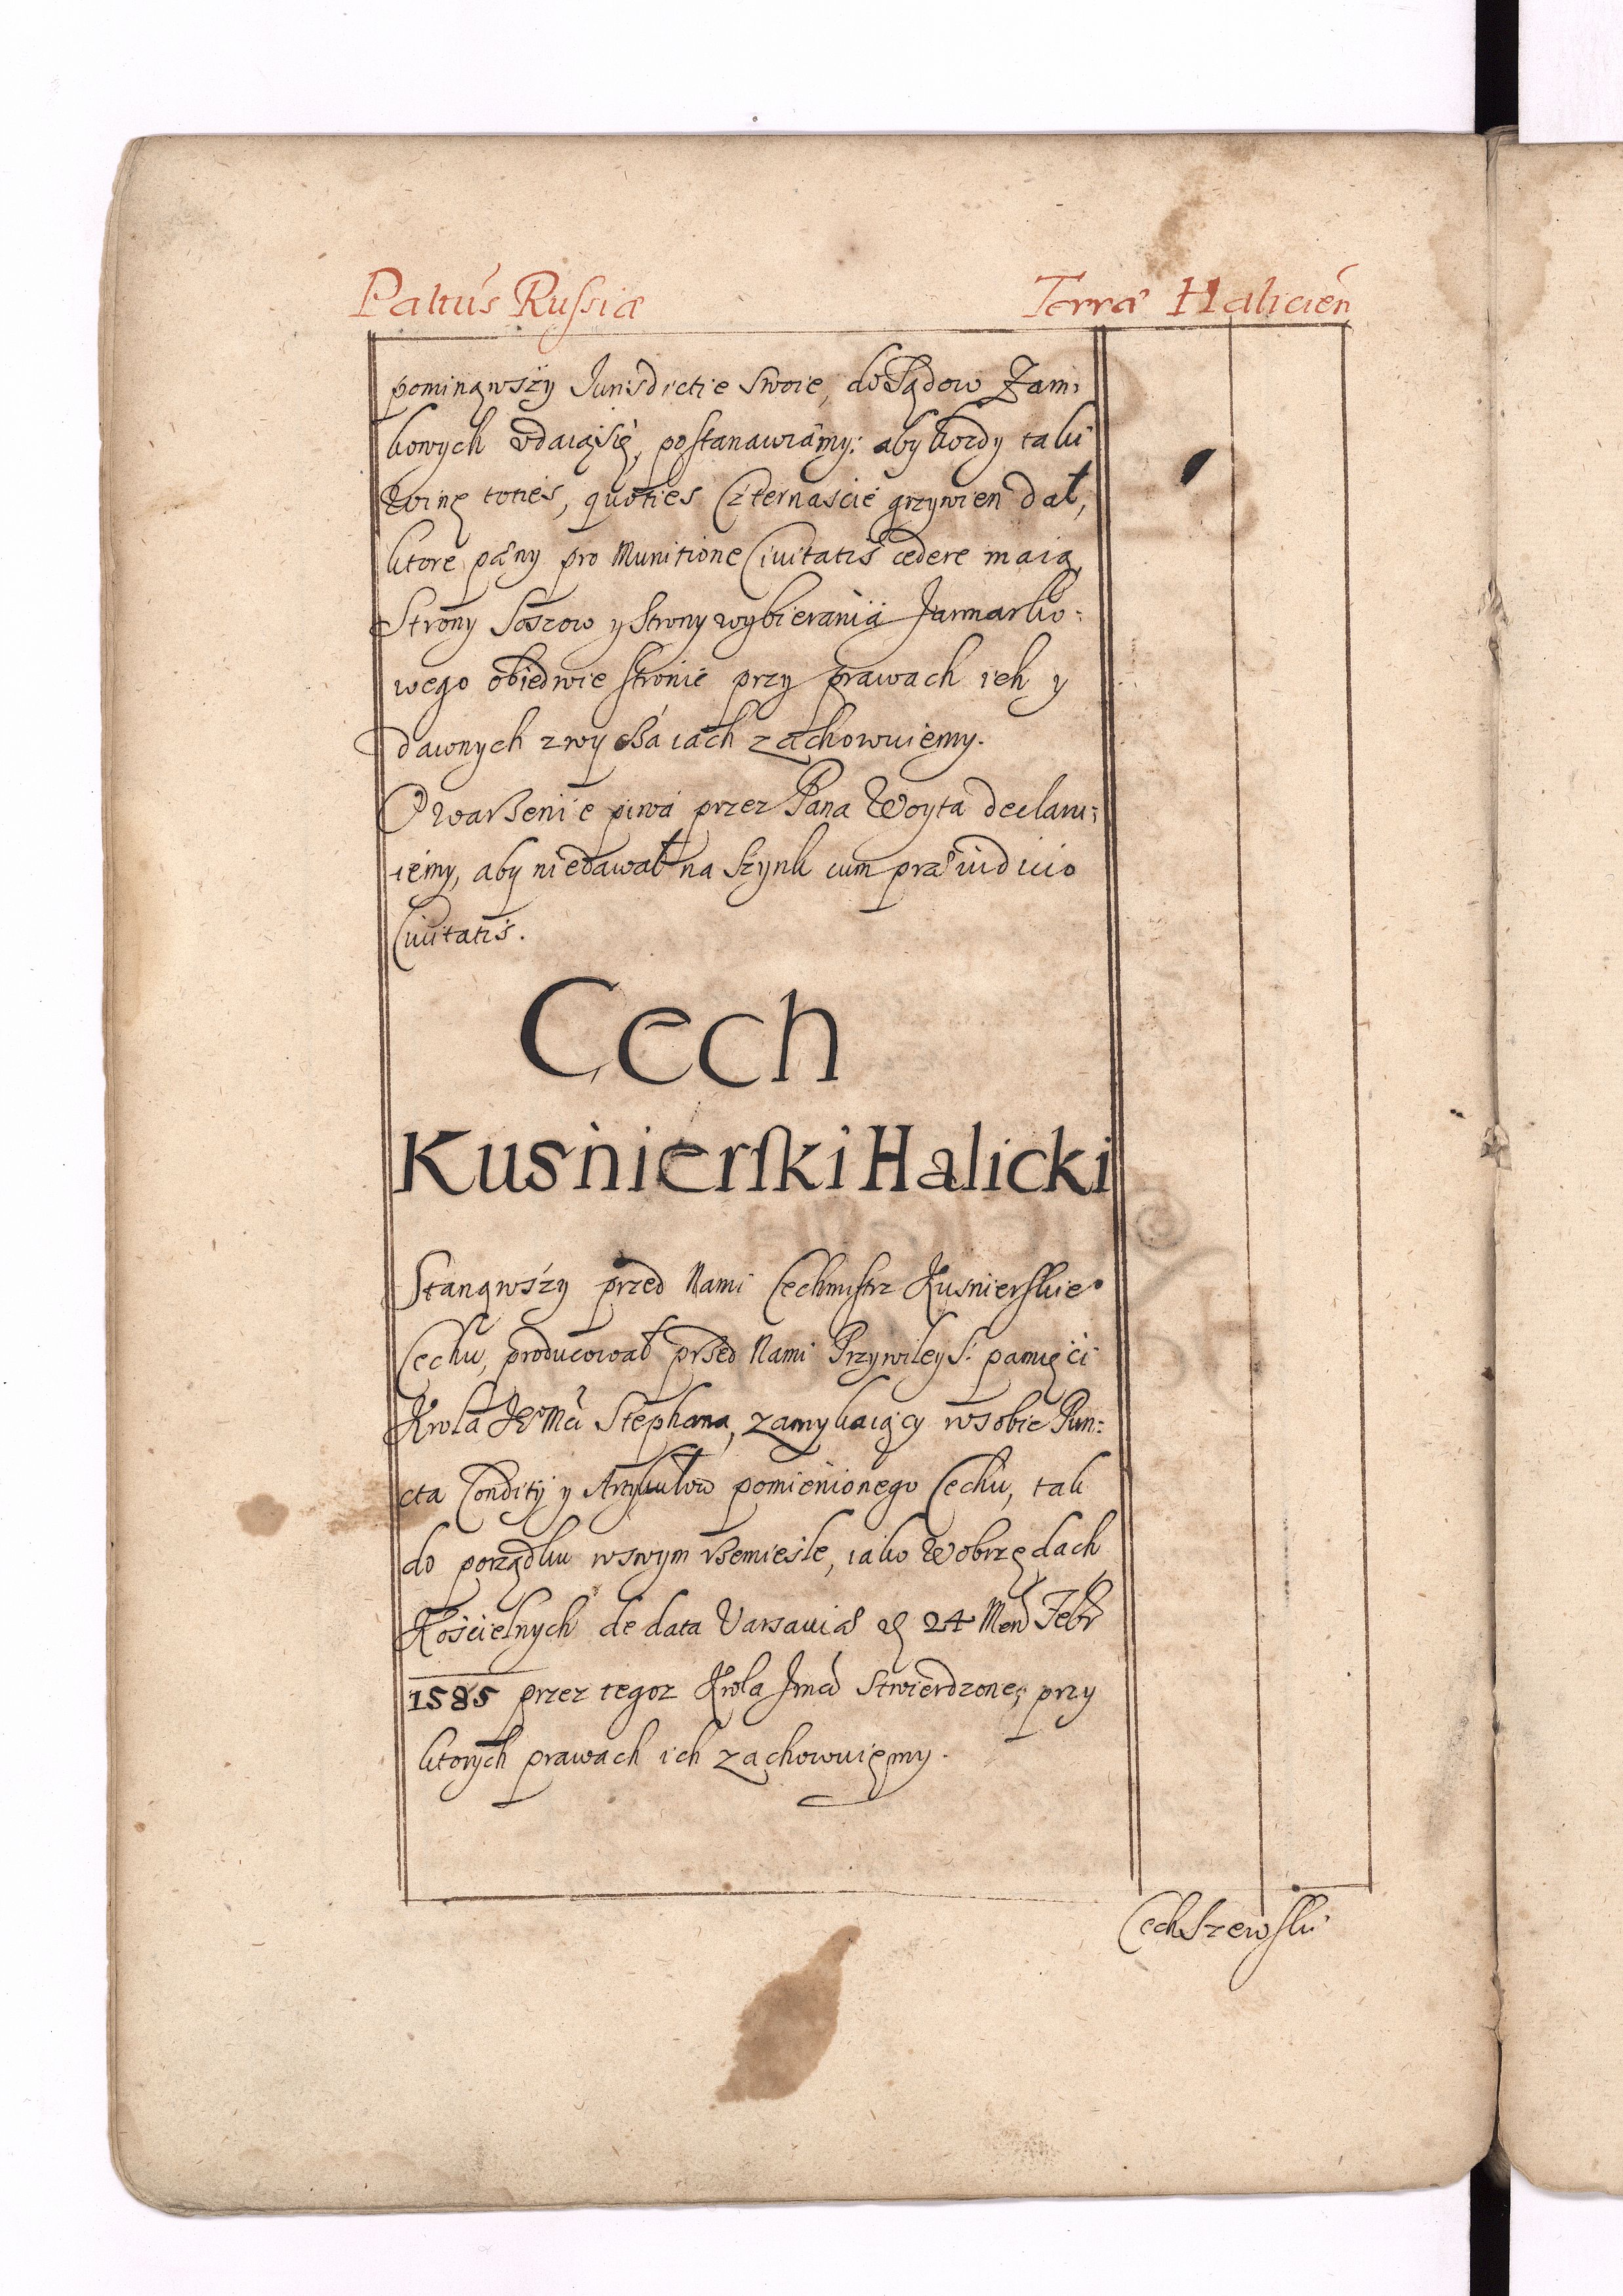 Paltús Russiæ
Terræ Halicień
pominąwszÿ Jurisdictie swoie, do Sądow Zam:
kowych vdaią się, postanawiámy: aby kozdy taki
Winę toties, quoties Czternascie grzywien dał,
ktore pæny pro Munitione Civitatis cedere maią,
Strony Soszow y Strony wybierania Jarmarko:
wego obiedwie stronie przy prawach ich y
dawnych zwyczáiach zachowuiemy.
O warzenie piwá przez Pana Woyta declaru:
iemy, aby niedawał na szynk cum præiudicio
Civitatis.
Cech
Kusnierski Halicki
Stanąwszy przed Nami Cechmistrz Kusnierskieo
Cechu, producował przed Nami Przywiley S. pamięci
Krola JeoMci Stephana, zamykaiący w sobie Pun:
cta Conditÿ y Artykułow pomienionego Cechu, tak
do porządku w swym rzemiesle, iako W obrzędach
Koscielnych de data Varsaviæ D 24 Men Febr
1585 przez tegoz Krola Jmci stwierdzone; przy
ktorych prawach ich zachowuięmy.
Cech Szewski